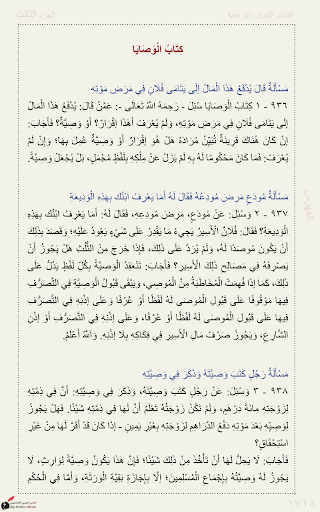 الفتاوى الكبرى - ابن تيمية
الجزء الثالث
كِتَابُ الْوَصَايَا
مَسْأَلَةٌ قَالَ يُدْفَعُ هَذَا الْمَالُ إلَى يَتَامَى فُلَانٍ فِي مَرَضِ مَوْتِهِ
٩٣٦ - ١ كِتَابُ الْوَصَايَا سُئِلَ - رَحِمَهُ اللَّهُ تَعَالَى -: عَمَّنْ قَالَ: يُدْفَعُ هَذَا الْمَالُ
إلَى يَتَامَى فُلَانٍ فِي مَرَضِ مَوْتِهِ، وَلَمْ يُعْرَفْ أَهَذَا إقْرَارٌ؟ أَوْ وَصِيَّةٌ؟ فَأَجَابَ:
إنْ كَانَ هُنَاكَ قَرِينَةٌ تُبَيِّنُ مُرَادَهُ هَلْ هُوَ إقْرَارٌ أَوْ وَصِيَّةٌ عُمِلَ بِهَا، وَإِنْ لَمْ
يُعْرَفْ: فَمَا كَانَ مَحْكُومًا لَهُ بِهِ لَمْ يَزُلْ عَنْ مِلْكِهِ بِلَفْظٍ مُجْمَلٍ، بَلْ يُجْعَلُ وَصِيَّةً.
مَسْأَلَةٌ مُودَعٍ مَرِضَ مُودِعُهُ فَقَالَ لَهُ أَمَا يَعْرِفُ ابْنُك بِهَذِهِ الْوَدِيعَةِ
٩٣٧ - ٢ وَسُئِلَ: عَنْ مُودَعٍ، مَرِضَ مُودِعُهُ، فَقَالَ لَهُ: أَمَا يَعْرِفُ ابْنُك بِهَذِهِ
الْوَدِيعَةِ؟ فَقَالَ: فُلَانٌ الْأَسِيرُ يَجِيءُ مَا يَقْدِرُ عَلَى شَيْءٍ يَعُودُ عَلَيْهِ؛ وَقَصَدَ بِذَلِكَ
أَنْ يَكُونَ مُوصَدًا لَهُ، وَلَمْ يُرَدَّ عَلَى ذَلِكَ، فَإِذَا خَرَجَ مِنْ الثُّلُثِ هَلْ يَجُوزُ أَنْ
يَصْرِفَهُ فِي مَصَالِحِ ذَلِكَ الْأَسِيرِ؟ فَأَجَابَ: تَنْعَقِدُ الْوَصِيَّةُ بِكُلِّ لَفْظٍ يَدُلُّ عَلَى
ذَلِكَ، كَمَا إذَا فُهِمَتْ الْمُخَاطَبَةُ مِنْ الْمُوصِي، وَيَبْقَى قَبُولُ الْوَصِيَّةِ فِي التَّصَرُّفِ
فِيهَا مَوْقُوفًا عَلَى قَبُولِ الْمُوصَى لَهُ لَفْظًا أَوْ عُرْفًا، وَعَلَى إذْنِهِ فِي التَّصَرُّفِ
فِيهَا عَلَى قَبُولِ الْمُوصَى لَهُ لَفْظًا أَوْ عُرْفًا، وَعَلَى إذْنِهِ فِي التَّصَرُّفِ أَوْ إذْنِ
الشَّارِعِ، وَيَجُوزُ صَرْفُ مَالِ الْأَسِيرِ فِي فِكَاكِهِ بِلَا إذْنِهِ. وَاَللَّهُ أَعْلَمُ.
مَسْأَلَةٌ رَجُلٍ كَتَبَ وَصِيَّتَهُ وَذَكَرَ فِي وَصِيَّتِهِ
٩٣٨ - ٣ وَسُئِلَ: عَنْ رَجُلٍ كَتَبَ وَصِيَّتَهُ، وَذَكَرَ فِي وَصِيَّتِهِ: أَنَّ فِي ذِمَّتِهِ
لِزَوْجَتِهِ مِائَةَ دِرْهَمٍ، وَلَمْ تَكُنْ زَوْجَتُهُ تَعْلَمُ أَنَّ لَهَا فِي ذِمَّتِهِ شَيْئًا. فَهَلْ يَجُوزُ
لِوَصِيِّهِ بَعْدَ مَوْتِهِ دَفْعُ الدَّرَاهِمِ لِزَوْجَتِهِ بِغَيْرِ يَمِينٍ - إذَا كَانَ قَدْ أَقَرَّ لَهَا مِنْ غَيْرِ
اسْتِحْقَاقٍ؟
فَأَجَابَ: لَا يَحِلُّ لَهَا أَنْ تَأْخُذَ مِنْ ذَلِكَ شَيْئًا؛ فَإِنَّ هَذَا يَكُونُ وَصِيَّةً لِوَارِثٍ، لَا
يَجُوزُ لَهُ وَصِيَّتُهُ بِإِجْمَاعِ الْمُسْلِمِينَ؛ إلَّا بِإِجَازَةِ بَقِيَّةِ الْوَرَثَةِ، وَأَمَّا فِي
الفهرس
١٧١٨